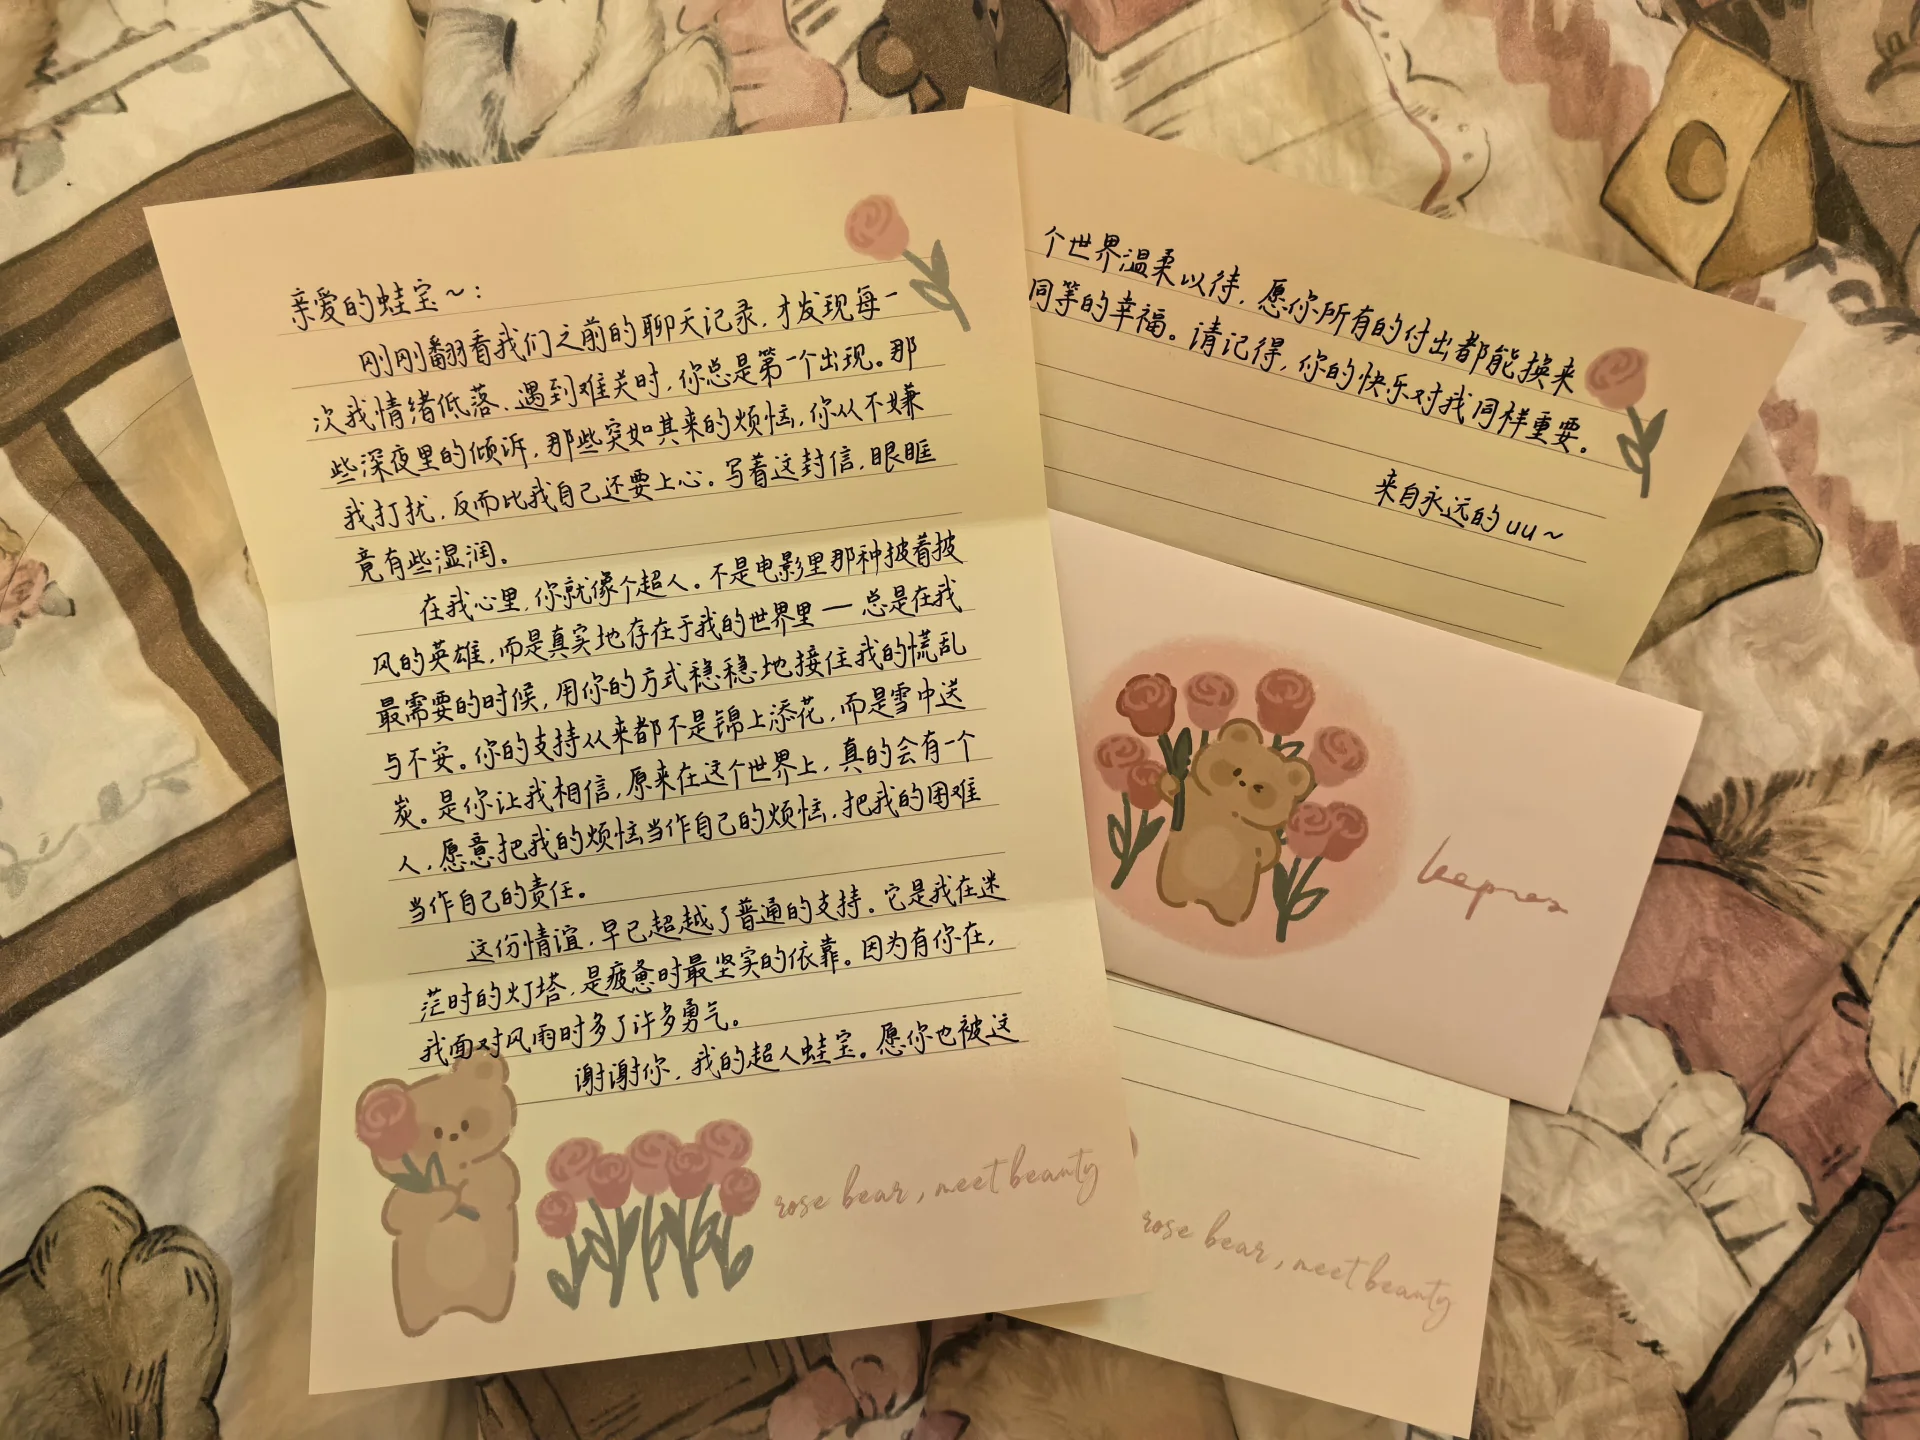 亲爱的蛙宝~:
刚刚翻看我们之前的聊天记录，才发现每一
次我情绪低落、遇到难关时，你总是第一个出现。那
些深夜里的倾诉，那些突如其来的烦恼，你从不嫌
我打扰，反而比我自己还要上心。写着这封信，眼眶
竟有些湿润。
在我心里，你就像个超人。不是电影里那种披着披
风的英雄，而是真实地存在于我的世界里——总是在我
最需要的时候，用你的方式稳稳地接住我的慌乱
与不安。你的支持从来都不是锦上添花，而是雪中送
炭。是你让我相信，原来在这个世界上，真的会有一个
人，愿意把我的烦恼当作自己的烦恼，把我的困难
当作自己的责任。
这份情谊，早已超越了普通的支持。它是我在迷
茫时的灯塔，是疲惫时最坚实的依靠。因为有你在，
我面对风雨时多了许多勇气。
谢谢你，我的超人蛙宝。愿你也被这
rose bear, meet beauty
个世界温柔以待，愿你所有的付出都能换来
同等的幸福。请记得，你的快乐对我同样重要。
来自永远的uu~
rose bear, meet beauty